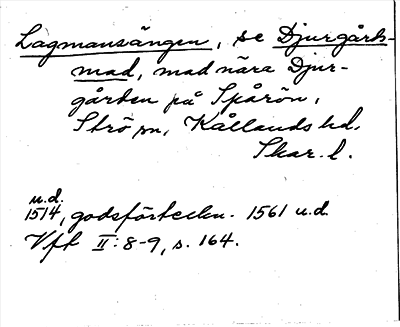 Lagmansängen, se Djurgårds-
mad, mad nära Djur-
gården på Spårön,
Strö sn, Kållands hd,
Skar. l.
u.d.
1514, godsförteckn. 1561 u.d.
Vft II:8-9, s. 164.